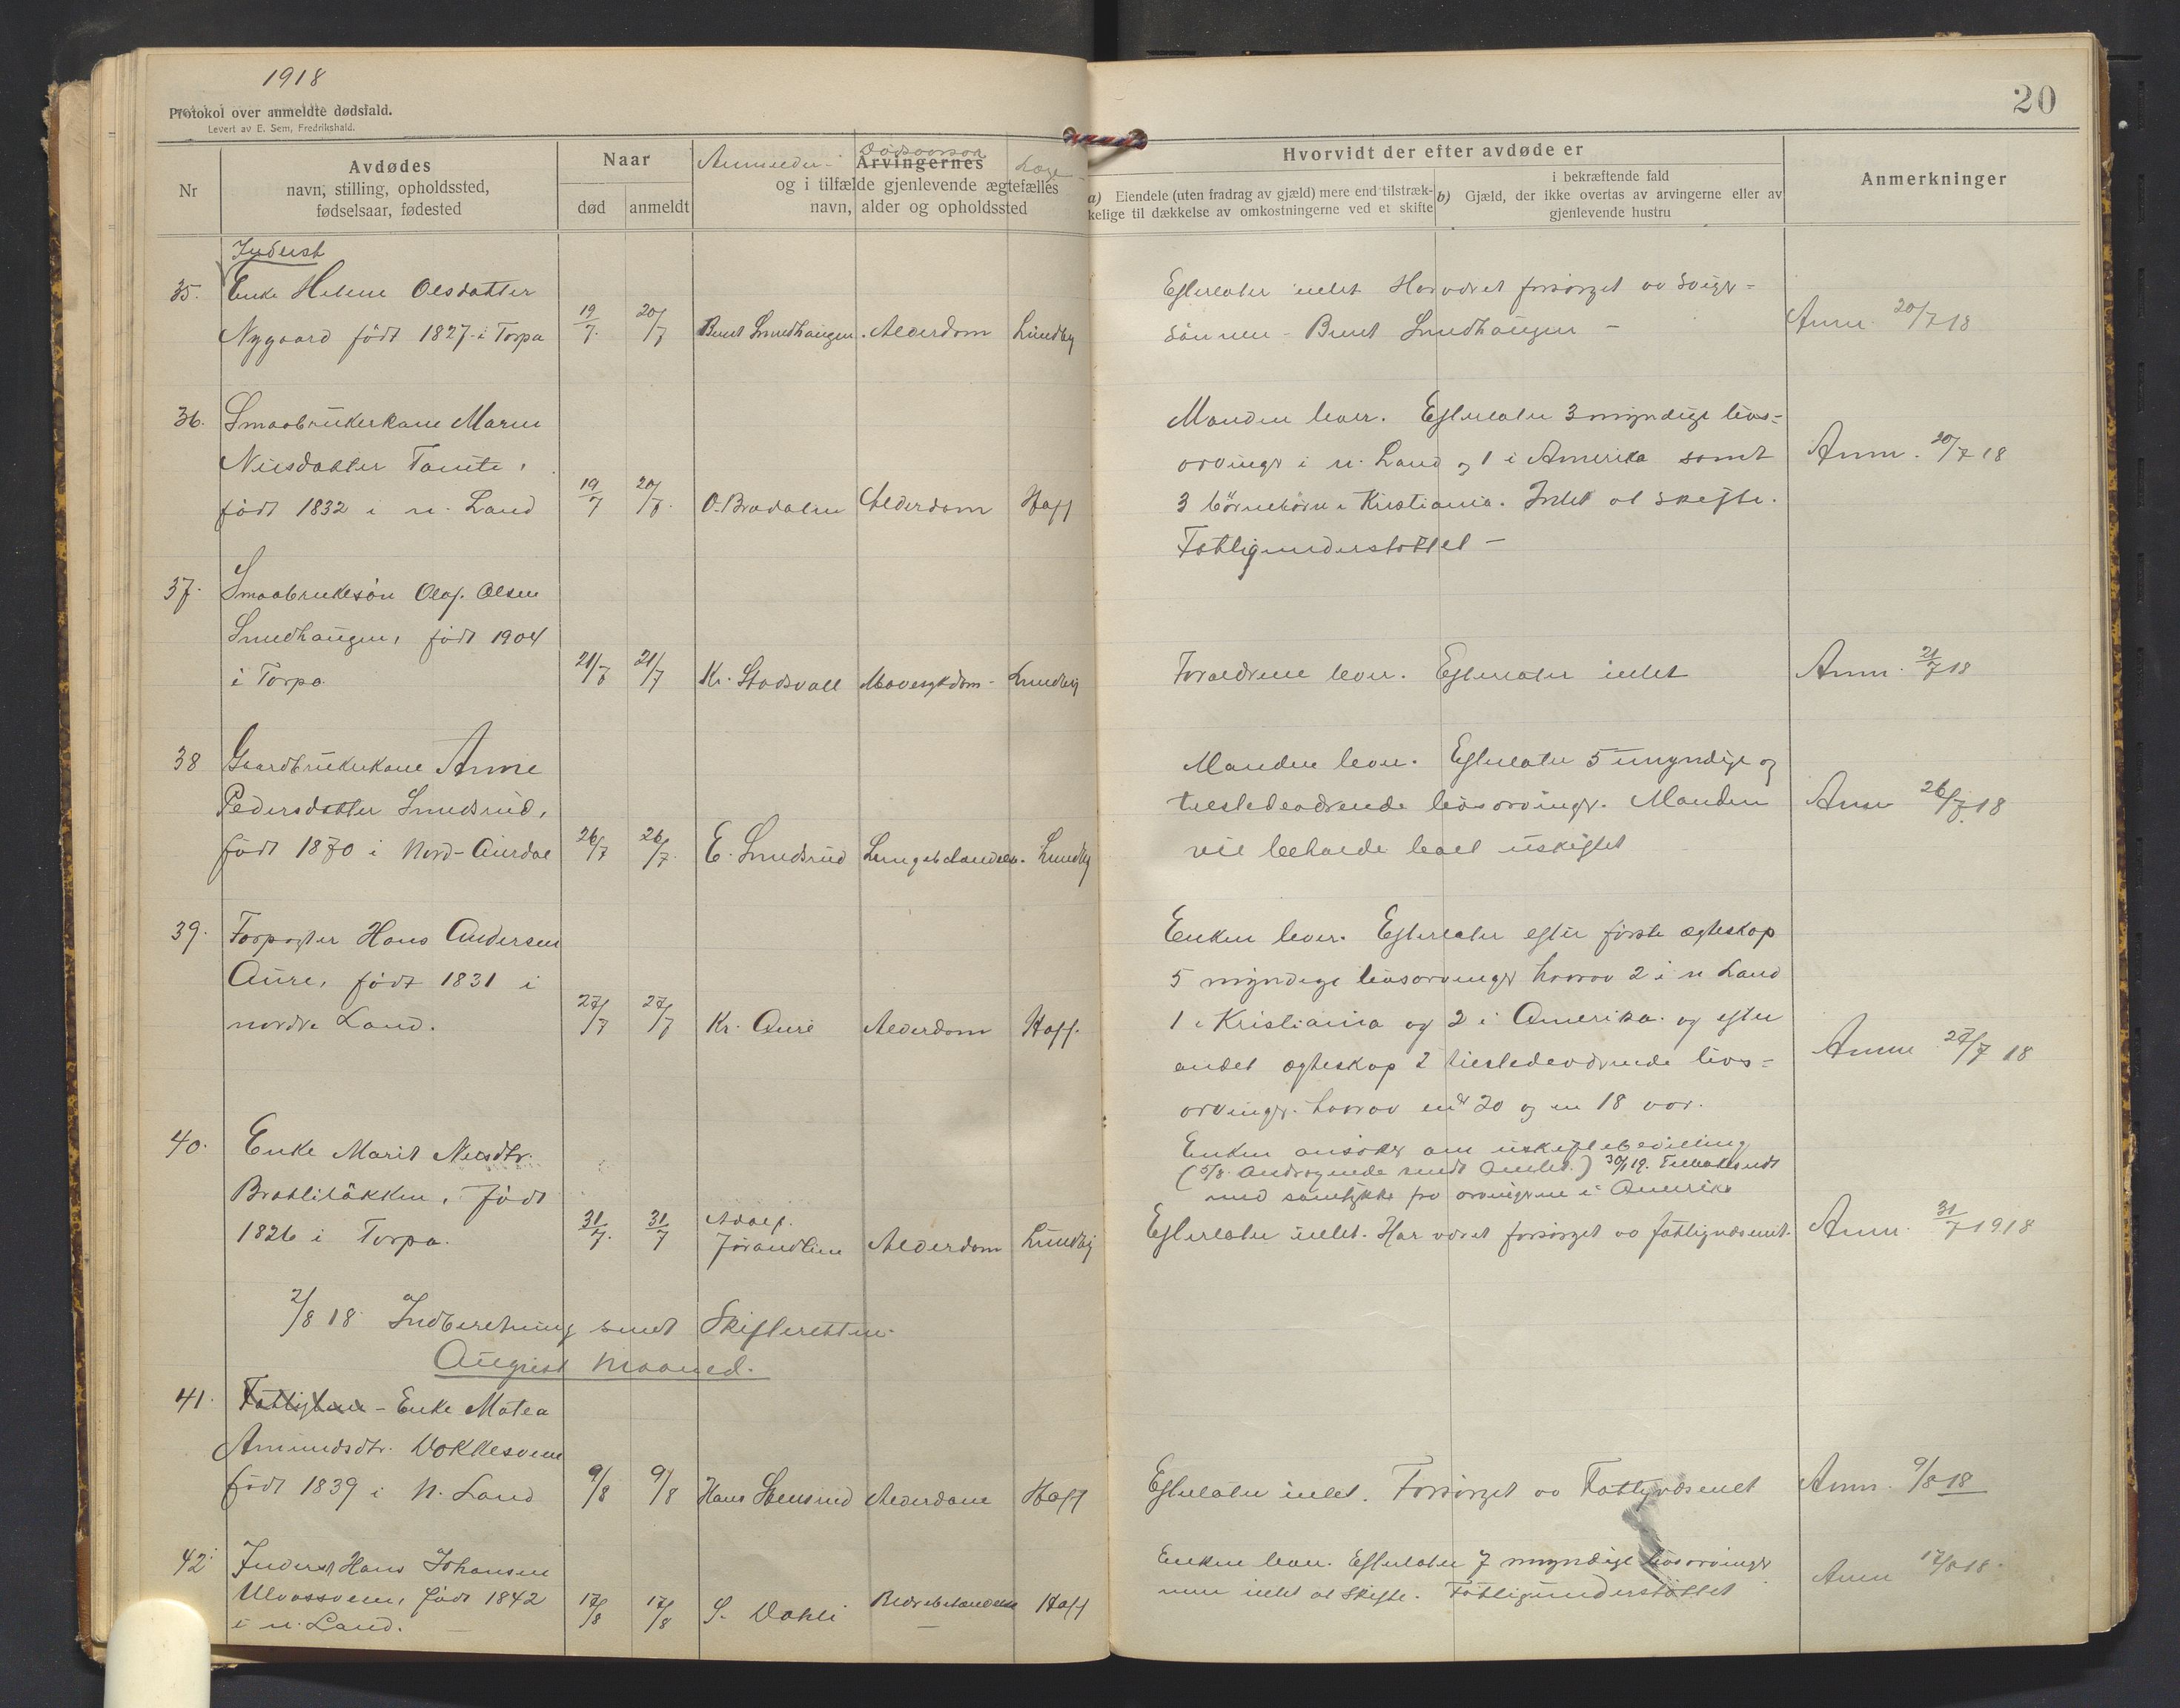 1918
Protokol over anmeldte dødsfald.
Levert av E. Sem, Fredrikshald.
20
Nr
Avdødes
navn, stilling, opholdssted,
fødselsaar, fødested
Naar
død
anmeldt
Anmelder
Dødsaarsak
Arvingernes
og i tilfælde gjenlevende ægtefælles
navn, alder og opholdssted
Hvorvidt der efter avdøde er
a) Eiendele (uten fradrag av gjæld) mere end tilstræk-
kelige til dækkelse av omkostningerne ved et skifte
i bekræftende fald
b) Gjæld, der ikke overtas av arvingerne eller av
gjenlevende hustru
Anmerkninger
Inderst
35. Enke Helene Olsdatter
Nygaard födt 1827 i Torpa 19/7 20/7 Bernt Smedhaugen Alderdom Lundby
Efterlater intet Har været forsörget av Sviger-
sönnen - Bernt Smedhaugen -
Anm. 20/7 18
36. Smaabrukerkone Maren
Nilsdatter Tomte,
födt 1832 i n. Land 19/7 20/7 O. Bradalen Alderdom Hoff
Manden lever. Efterlater 3 myndige livs-
arvinger i n. Land og 1 i Amerika samt
3 börnebörn i Kristiania. Intet at skifte.
Fattigunderstöttet -
Anm. 20/7 18
37. Smaabrukersön Olaf Olsen
Smedhaugen, födt 1904
i Torpa 21/7 21/7 Kr. Stadsvold Mavesykdom - Lundby
Foraeldrene lever. Efterlater intet
Anm. 21/7 18
38 Gaardbrukerkone Anne
Pedersdatter Smedsrud,
födt 1870 i Nord-Aurdal 26/7 26/7 E. Smedsrud Lungebetændelse Lundby
Manden lever. Efterlater 5 umyndige og
tilstedeværende livsarvinger. Manden
vil beholde boet uskiftet
Anm 26/7 18
39. Forpagter Hans Andersen
Aure, födt 1831 i
nordre Land. 27/7 27/7 Kr. Aure Alderdom Hoff.
Enken lever. Efterlater efter förste ægteskap
5 myndige livsarvinger hvorav 2 i n Land
1 i Kristiania og 2 i Amerika og efter
andet ægteskap 2 tilstedeværende livs-
arvinger. hvorav en er 20 og en 18 aar.
Enken ansöker om uskiftebevilling
(5/8 Andragende sendt Amtet.) 30/1 19. Tilbakesendt
med samtykke fra arvingerne i Amerika
Anm 27/7 18
40. Enke Marit Nilsdtr.
Bratlilökken, födt
1826 i Torpa. 31/7 31/7 Adolf Jörandlien Alderdom Lundby
Efterlater intet. Har været forsörget av fattigvæsenet.
Anm. 31/7 1918
2/8 18 Indberetning sendt Skifteretten.
August maaned.
41. Fattiglem - Enke Matea
Amundsdtr. Vokkesveen
födt 1839 i N. Land 9/8 9/8 Hans Stensrud Alderdom Hoff
Efterlater intet. Forsörget av Fattigvæsenet
Anm. 9/8 18
42 Inderst Hans Johansen
Ulvassveen, födt 1842
i n. Land. 17/8 17/8 S. Dahli Hoff
Enken lever. Efterlater 7 myndige livsarvinger
men intet at skifte. Fattigunderstöttet
Anm 17/8 18.